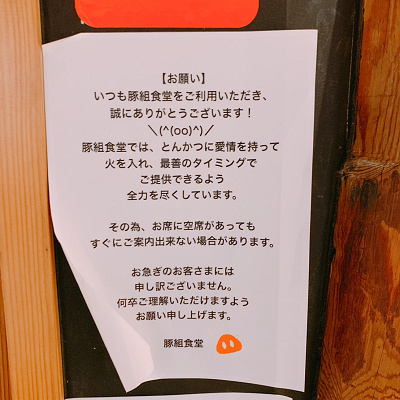 【お願い】
いつも豚組食堂をご利用いただき、
誠にありがとうございます！
＼(^(oo)^)／
豚組食堂では、とんかつに愛情を持って
火を入れ、最善のタイミングで
ご提供できるよう
全力を尽くしています。
その為、お席に空席があっても
すぐにご案内出来ない場合があります。
お急ぎのお客さまには
申し訳ございません。
何卒ご理解いただけますよう
お願い申し上げます。
豚組食堂